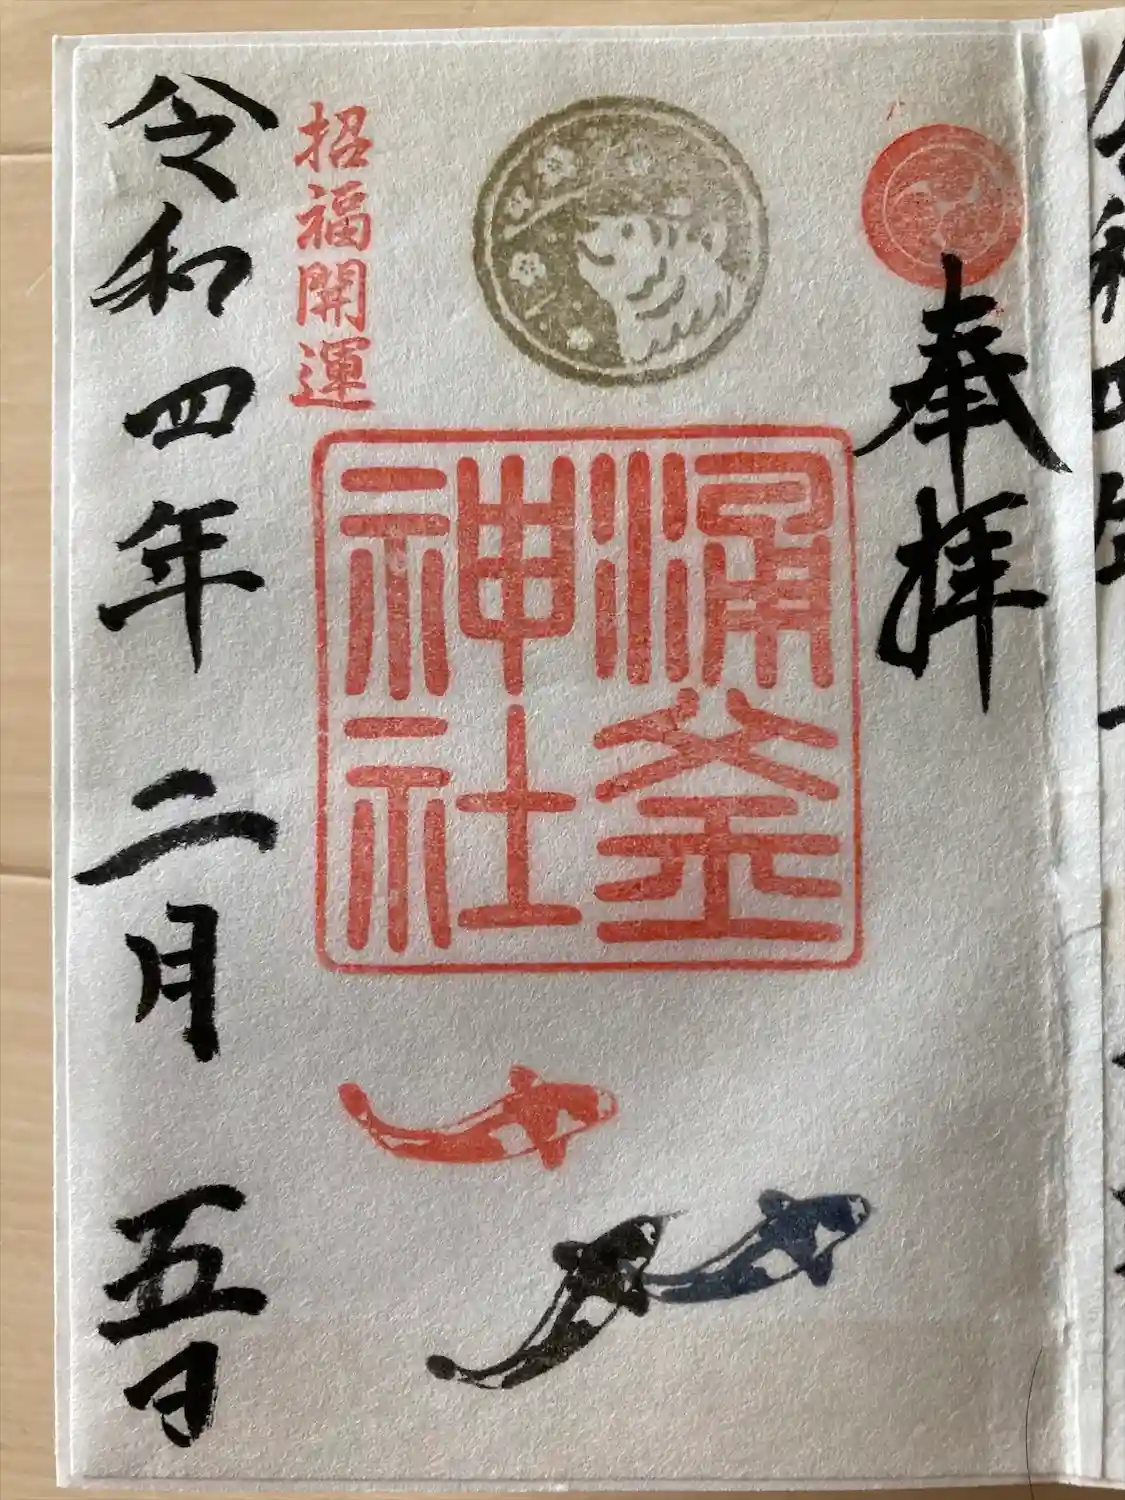 奉拝
涌釜
神社
招福開運
令和四年二月五日